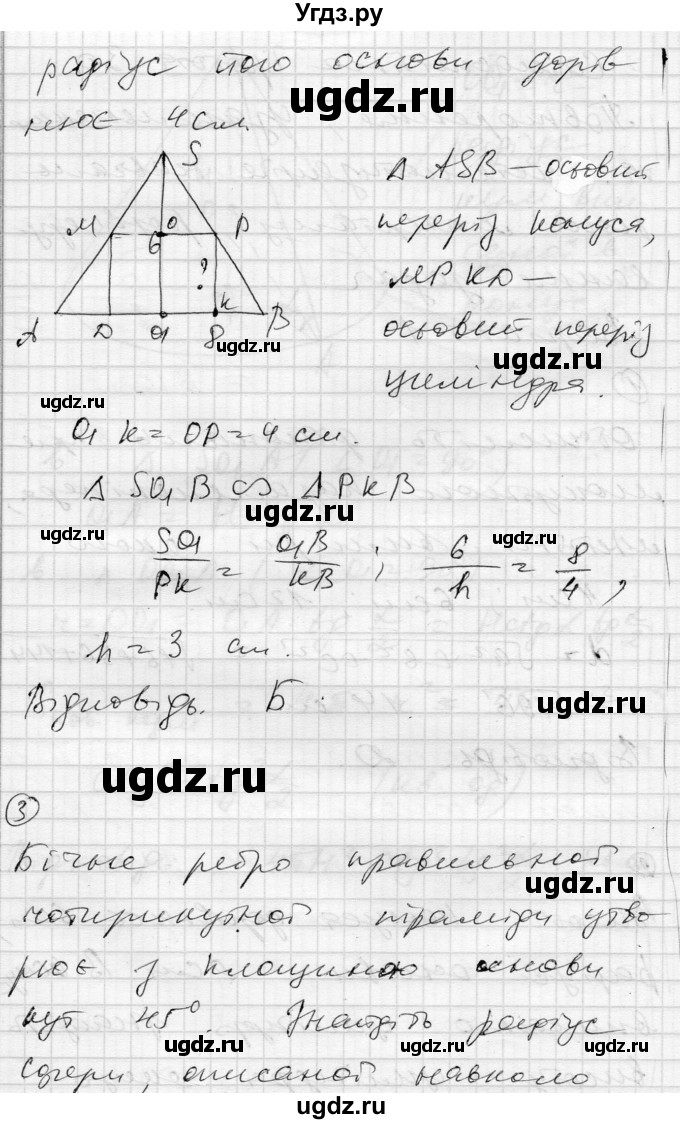 Угдз.ру
радіус його основи дорів
нює 4 см.
ugdz.ru
S
M O P
6
?
A D O₁ 8 K B
Δ ASB – осьовий
переріз конуса,
MPKD –
осьовий переріз
циліндра.
ugdz.ru
ugdz.ru
ugdz.ru
O₁K = OP = 4 см.
Δ SO₁B ∾ Δ PKB
ugdz.ru
ugdz.ru
SO₁/PK = O₁B/KB ; 6/h = 8/4 ,
h = 3 см.
Відповідь. Б.
ugdz.ru
ugdz.ru
3
Бічне ребро правильної
ugdz.ru
чотирикутної піраміди утво
рює з площиною основи
кут 45°. Знайдіть радіус
ugdz.ru
сфери, описаної навколо
ugdz.ru